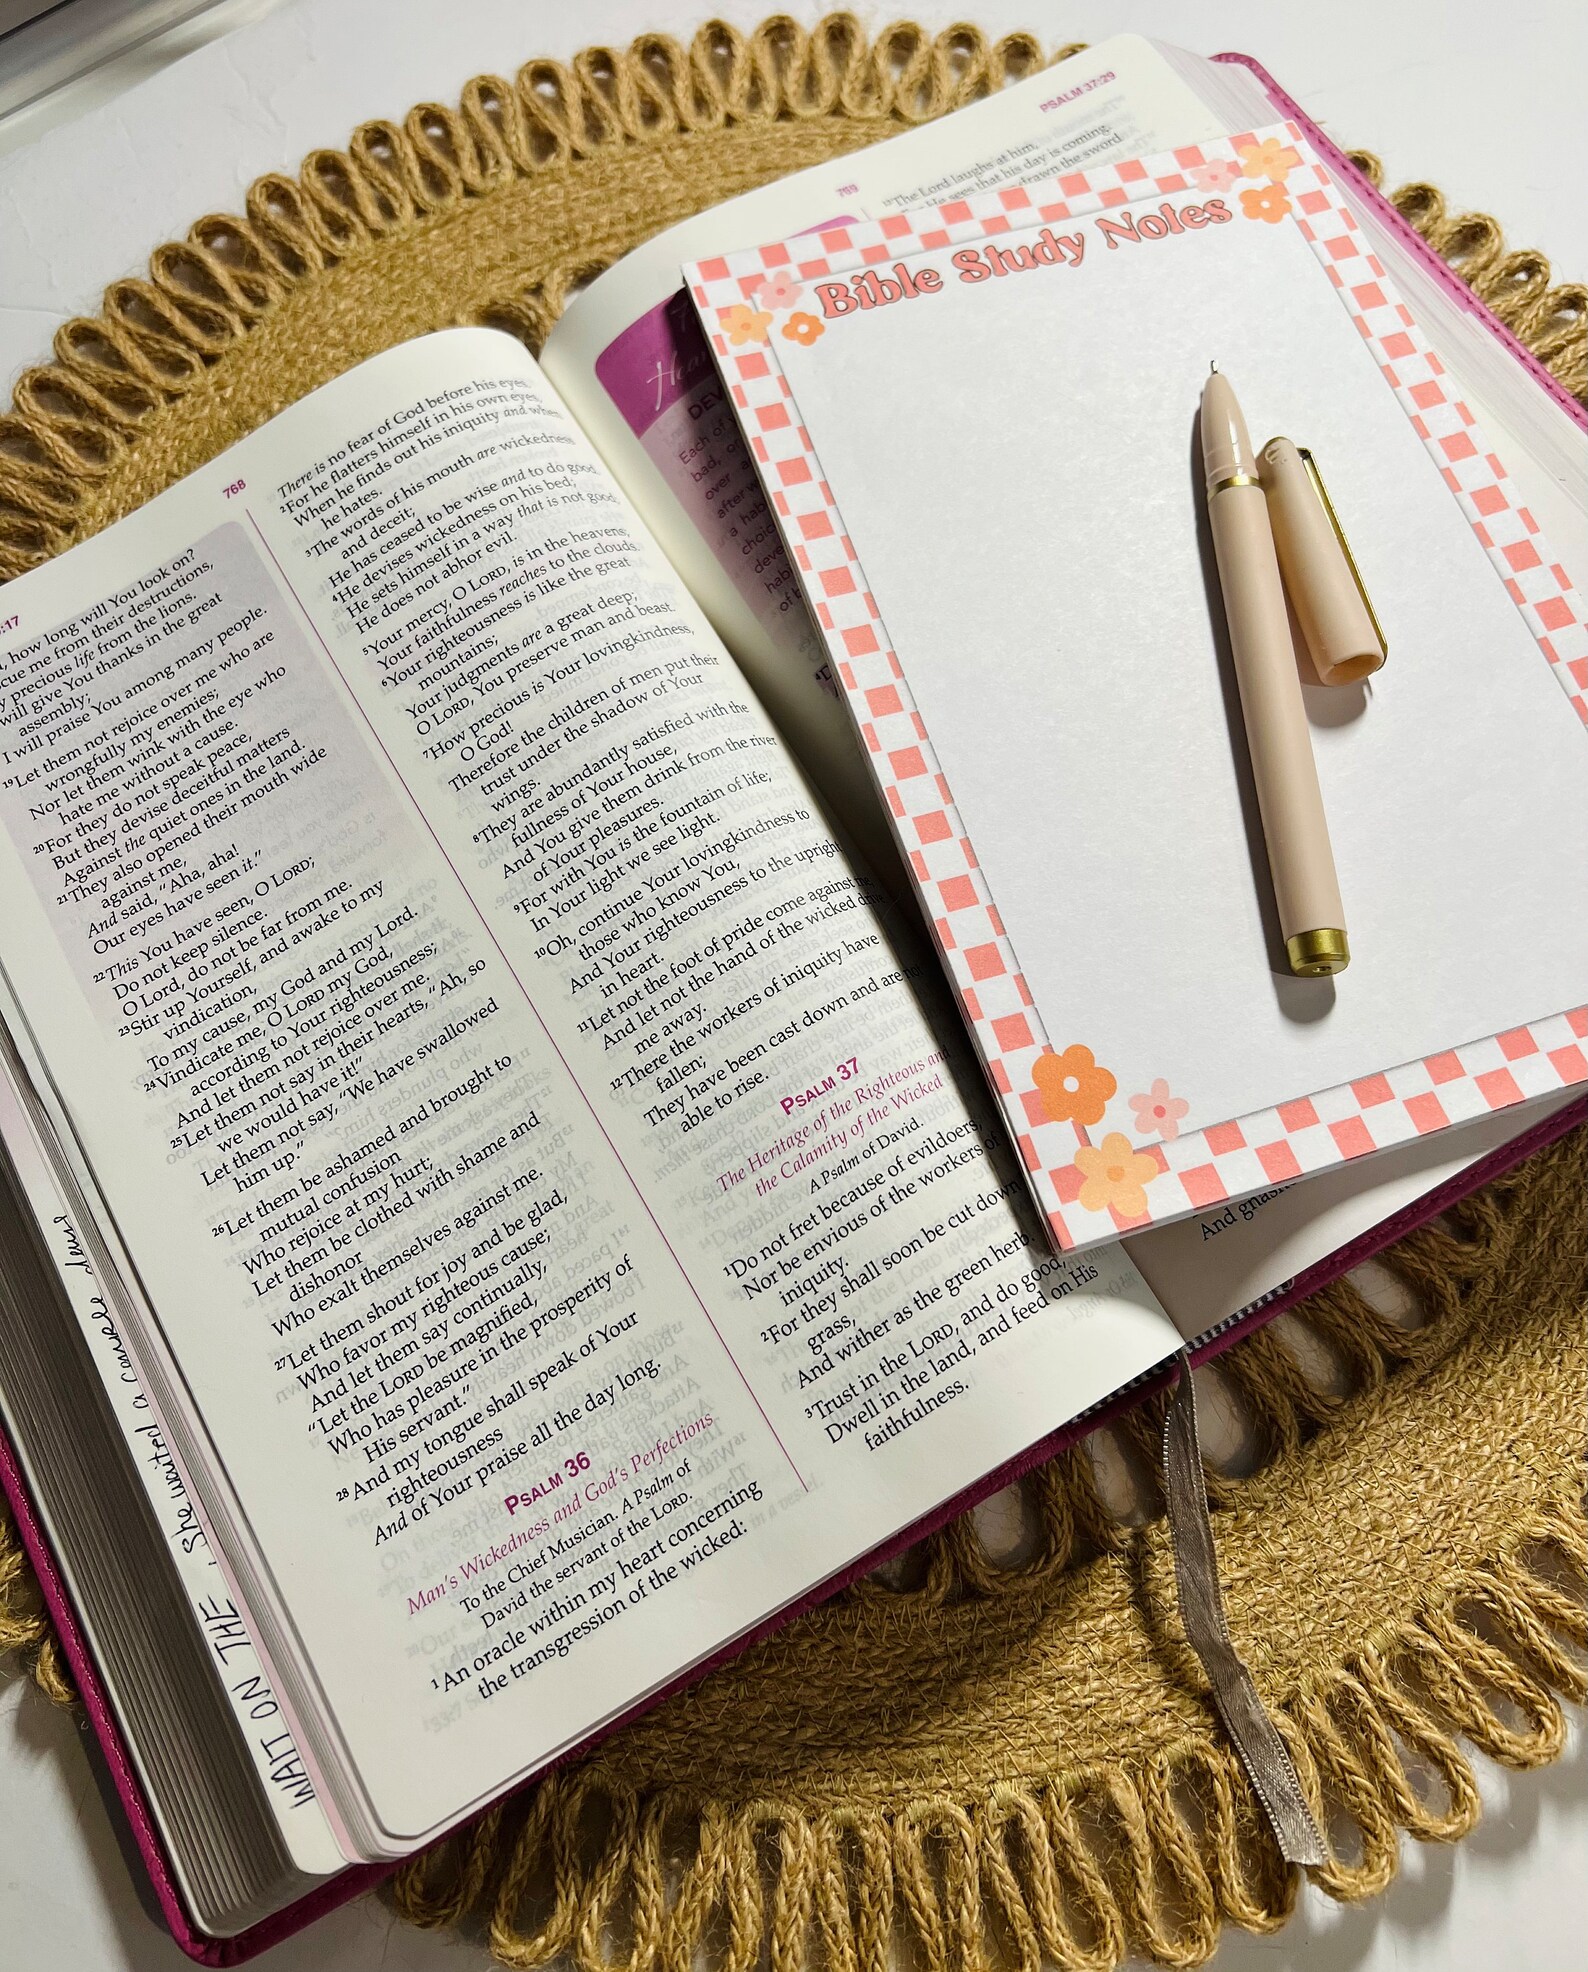 :17
768
, how long will You look on?
cue me from their destructions,
precious life from the lions.
will give You thanks in the great
assembly;
I will praise You among many people.
19Let them not rejoice over me who are
wrongfully my enemies;
Nor let them wink with the eye who
hate me without a cause.
20For they do not speak peace,
But they devise deceitful matters
Against the quiet ones in the land.
21They also opened their mouth wide
against me,
And said, “Aha, aha!
Our eyes have seen it.”
22This You have seen, O LORD;
Do not keep silence.
O Lord, do not be far from me.
23Stir up Yourself, and awake to my
vindication,
To my cause, my God and my Lord.
24Vindicate me, O LORD my God,
according to Your righteousness;
And let them not rejoice over me.
25Let them not say in their hearts, “Ah, so
we would have it!”
Let them not say, “We have swallowed
him up.”
26Let them be ashamed and brought to
mutual confusion
Who rejoice at my hurt;
Let them be clothed with shame and
dishonor
Who exalt themselves against me.
27Let them shout for joy and be glad,
Who favor my righteous cause;
And let them say continually,
“Let the LORD be magnified,
Who has pleasure in the prosperity of
His servant.”
28And my tongue shall speak of Your
righteousness
And of Your praise all the day long.
PSALM 36
Man's Wickedness and God's Perfections
To the Chief Musician. A Psalm of
David the servant of the LORD.
1An oracle within my heart concerning
the transgression of the wicked:
There is no fear of God before his eyes.
2For he flatters himself in his own eyes,
When he finds out his iniquity and when
he hates.
3The words of his mouth are wickedness
and deceit;
He has ceased to be wise and to do good.
4He devises wickedness on his bed;
He sets himself in a way that is not good;
He does not abhor evil.
5Your mercy, O LORD, is in the heavens;
Your faithfulness reaches to the clouds.
6Your righteousness is like the great
mountains;
Your judgments are a great deep;
O LORD, You preserve man and beast.
7How precious is Your lovingkindness,
O God!
Therefore the children of men put their
trust under the shadow of Your
wings.
8They are abundantly satisfied with the
fullness of Your house,
And You give them drink from the river
of Your pleasures.
9For with You is the fountain of life;
In Your light we see light.
10Oh, continue Your lovingkindness to
those who know You,
And Your righteousness to the upright
in heart.
11Let not the foot of pride come against me,
And let not the hand of the wicked drive
me away.
12There the workers of iniquity have
fallen;
They have been cast down and are not
able to rise.
PSALM 37
The Heritage of the Righteous and
the Calamity of the Wicked
A Psalm of David.
1Do not fret because of evildoers,
Nor be envious of the workers of
iniquity.
2For they shall soon be cut down
grass,
And wither as the green herb.
3Trust in the LORD, and do good;
Dwell in the land, and feed on His
faithfulness.
WAIT ON THE
She waited
769
PSALM 37:29
13The Lord laughs at him,
He sees that his day is coming.
drawn the sword
DEV
Each of
bad, o
over
after
a hab
choic
deve
hab
of
Bible Study Notes
And gnash